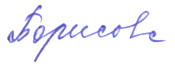 Борисова